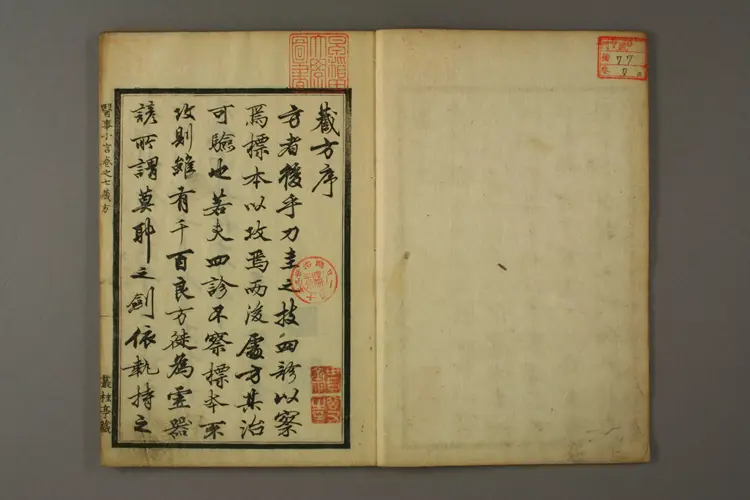 藏方序
方者後乎刀圭之技四診以察
焉標本以攻焉而後處方其治
可驗也若夫四診不察標本不
攻則雖有千百良方徒為虛器
諺所謂莫耶之劍依執持之
醫事小言卷之七藏方
叢桂亭藏
77
7